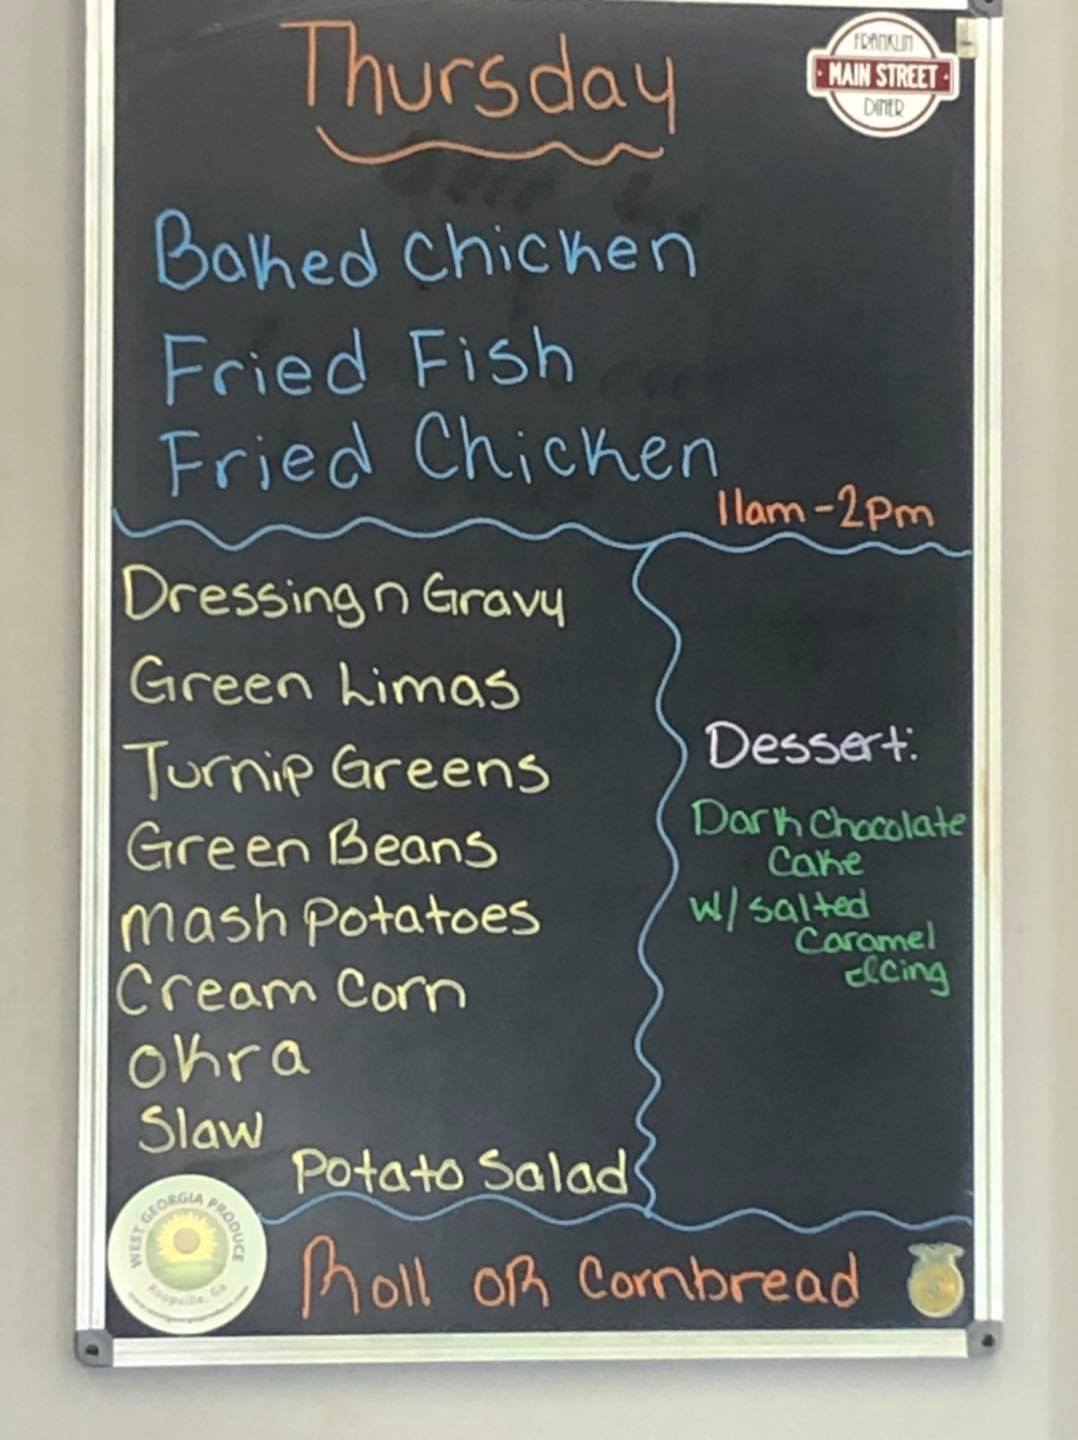 Thursday
FRANKLIN
MAIN STREET
DINER
Baked Chicken
Fried Fish
Fried Chicken
11am-2pm
Dressing n Gravy
Green Limas
Turnip Greens
Green Beans
Mash Potatoes
Cream Corn
Okra
Slaw
Potato Salad
Dessert:
Dark Chocolate
Cake
w/ salted
Caramel
Icing
WEST GEORGIA PRODUCE
Roopville, Ga
Roll OR Cornbread